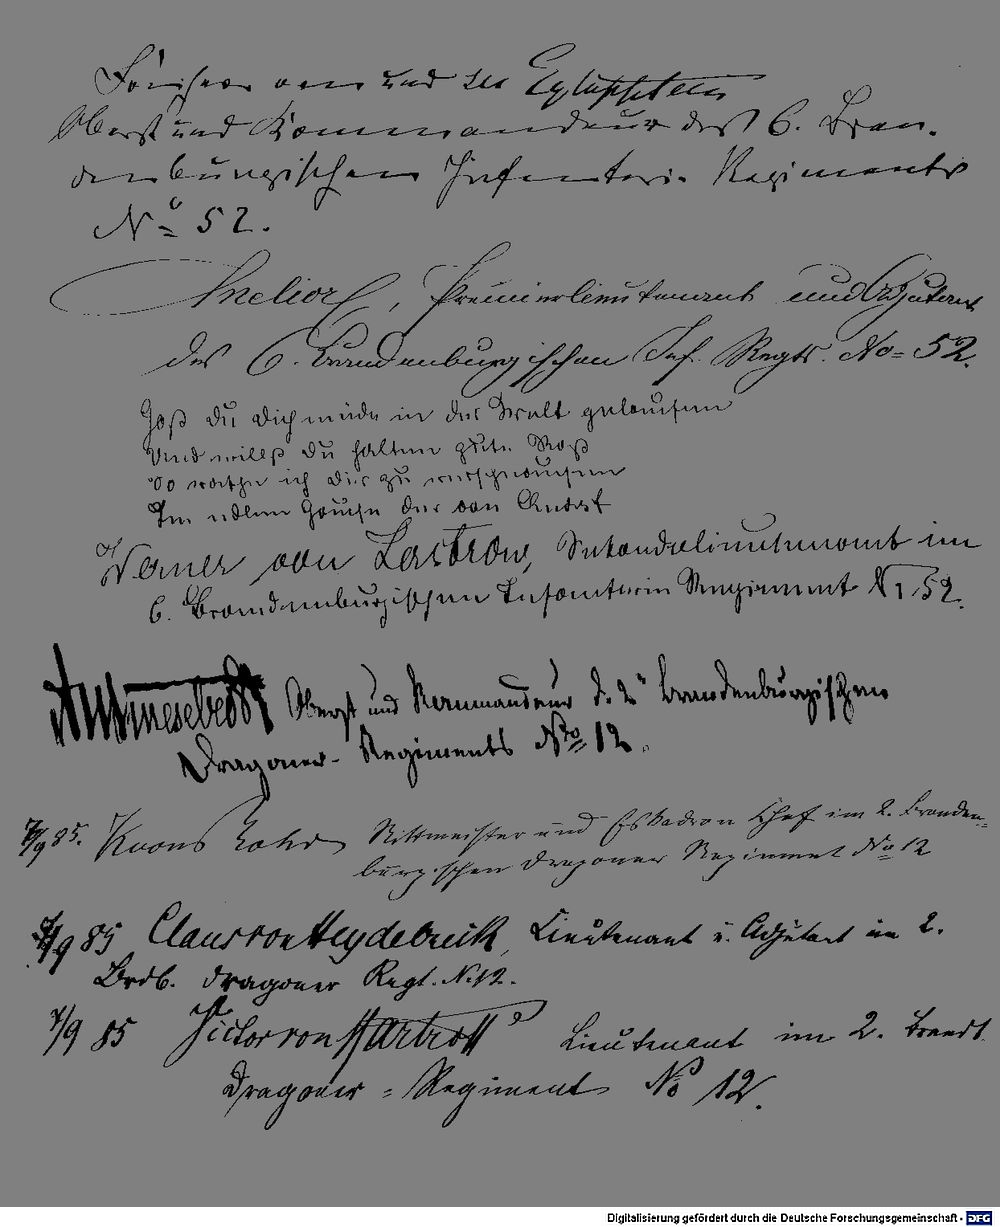 Freiherr von und zu Egloffstein
Oberst und Kommandeur des 6. Bran-
denburgischen Infanterie Regiments
No 52.
Premierlieutenant und Adjutant
des 6. Brandenburgischen Inf. Regts. No 52.
Hast du dich müde in der Welt gelaufen
Und willst du halten gute Rast
So rathe ich dir zu verschnaufen
Im edlen Hause der von
Werner von Lastrow, Sekondelieutenant im
6. Brandenburgischen Infanterie Regiment Nr. 52.
Oberst und Kommandeur d. 2n Brandenburgischen
Dragoner-Regiments No 12.
7/9 85. Rohr Rittmeister und Eskadron Chef im 2. Branden-
burgischen Dragoner Regiment No 12
7/9 85 Claus von Heydebreck, Lieutenant u. Adjutant im 2.
Brdb. Dragoner Regt. No. 12.
7/9 85 Victor von Lieutenant im 2. Brandb.
Dragoner-Regiment No 12.
Digitalisierung gefördert durch die Deutsche Forschungsgemeinschaft - DFG